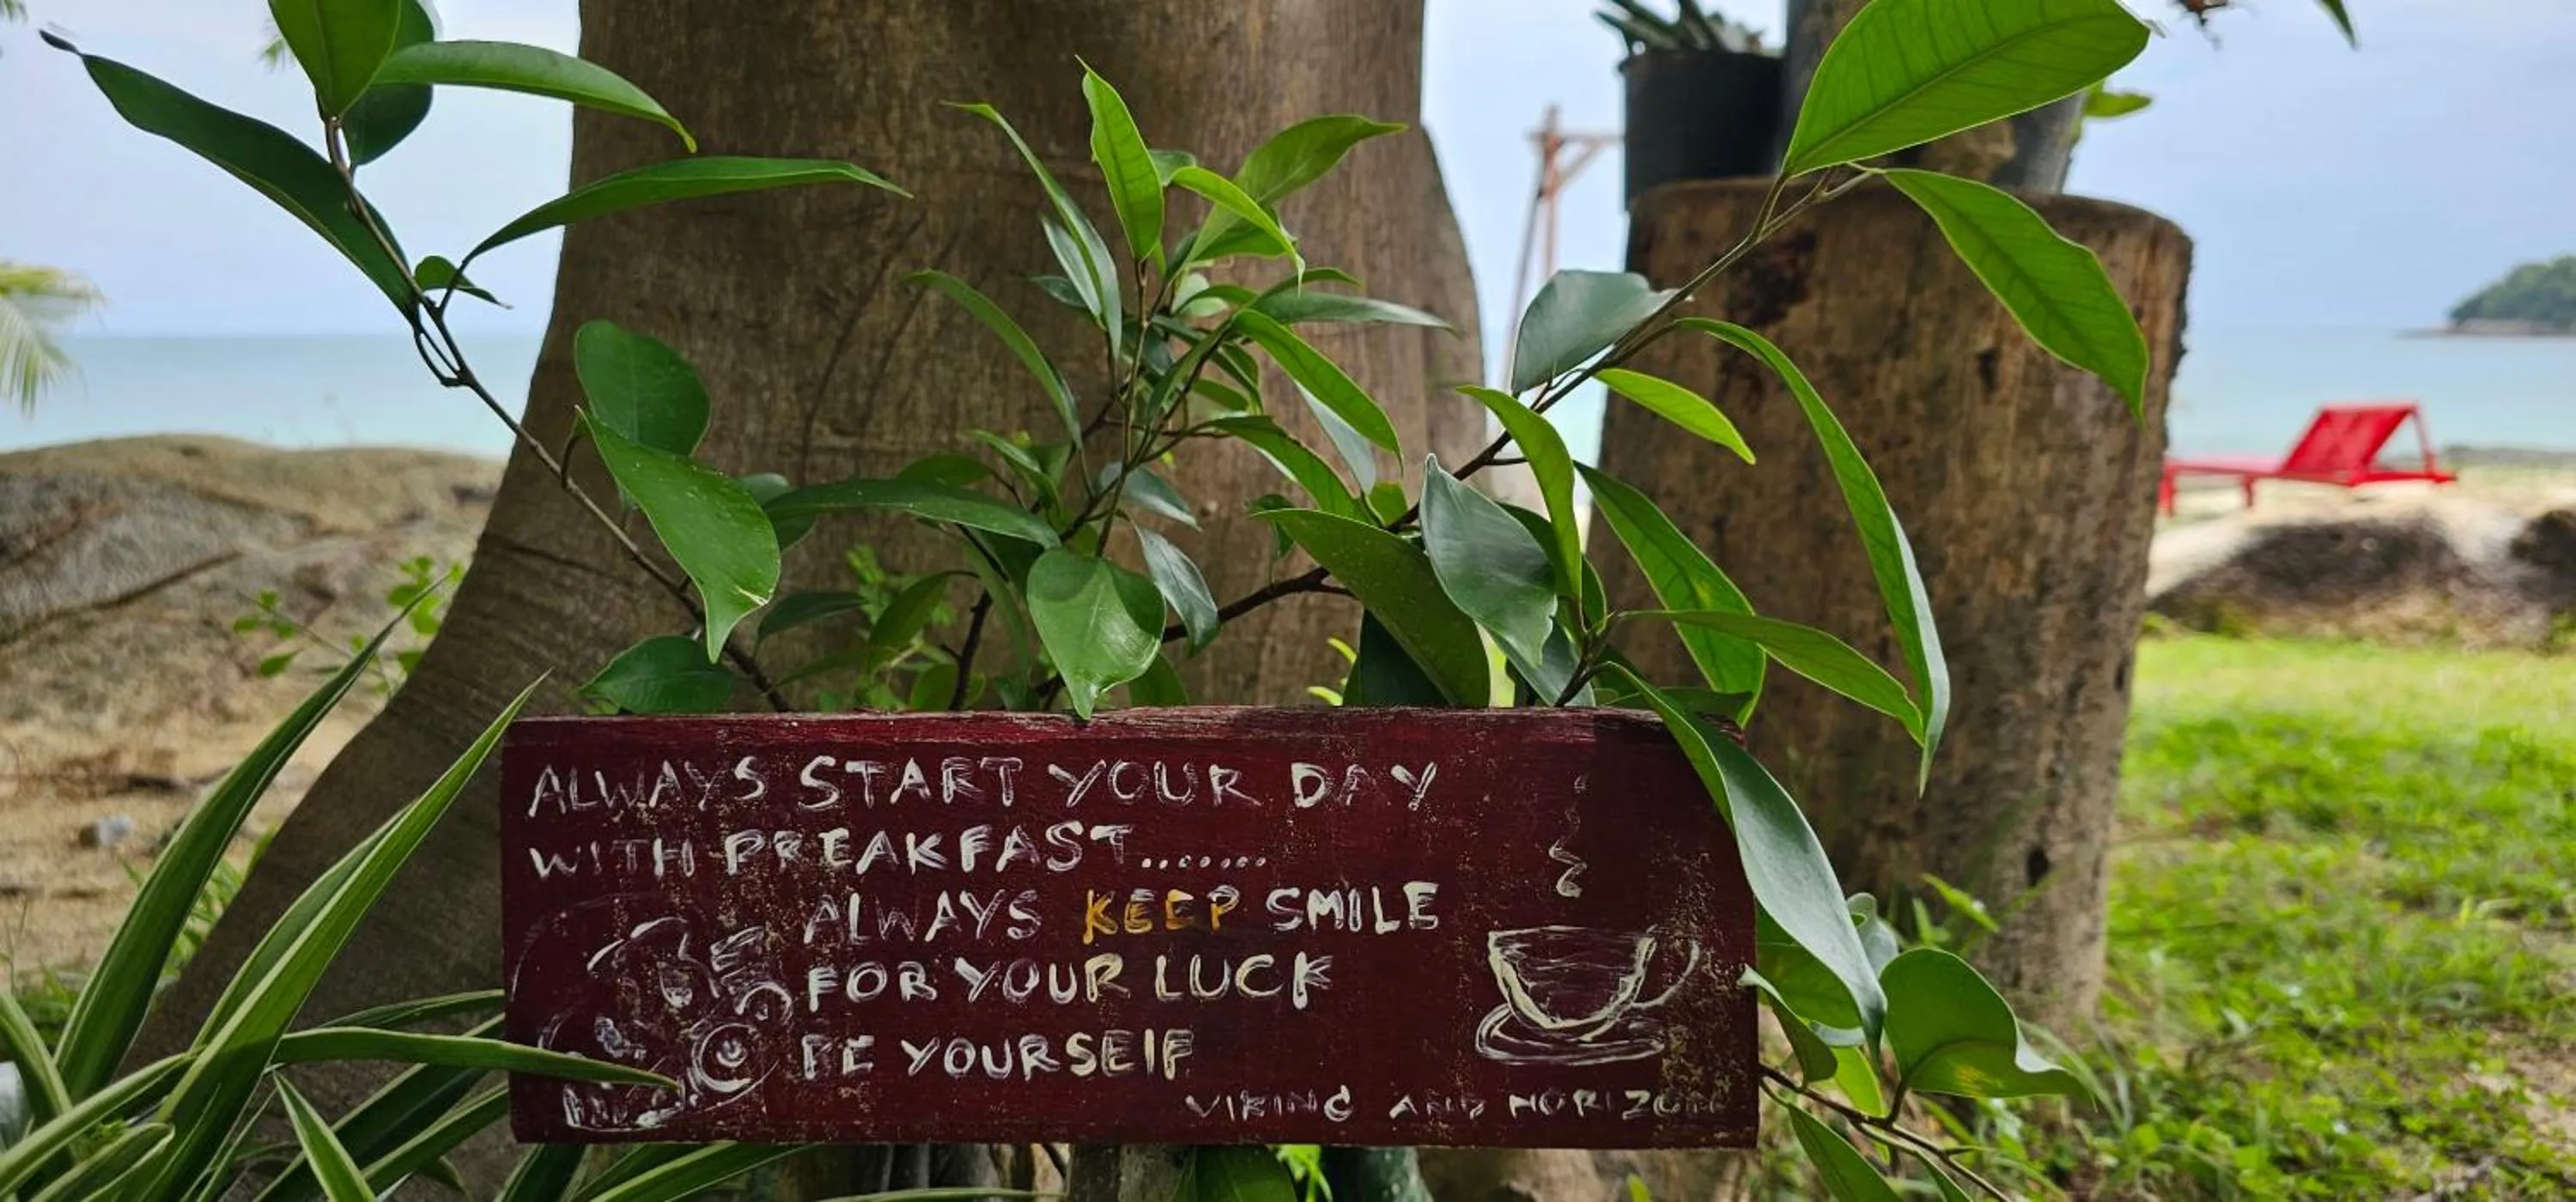 ALWAYS START YOUR DAY
WITH BREAKFAST........
ALWAYS KEEP SMILE
FOR YOUR LUCK
BE YOURSELF
VIKING AND HORIZON